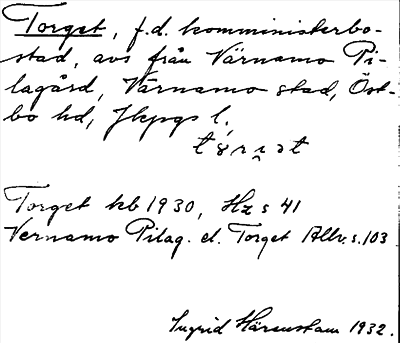 Torget, f.d. komministerbo-
stad, avs från Värnamo Pi-
lagård, Värnamo stad, Öst-
bo hd, Jkpgs l.
Torget kb 1930, Hz s 41
Vernamo Pilag. el. Torget Allv. s. 103
Ingrid Härenstam 1932.